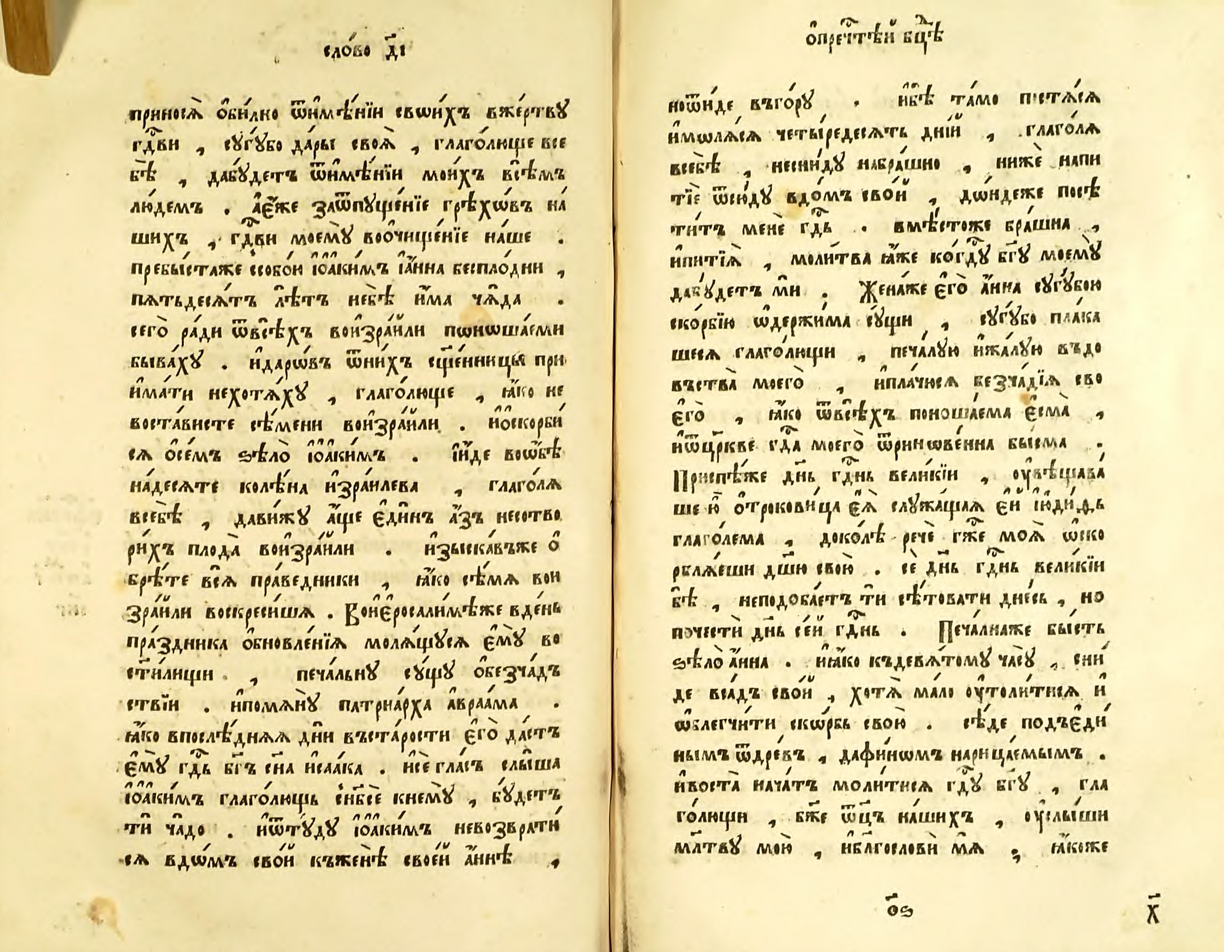 сло́во д҃і
принося̀ ѻ҆би́лно ѿи҆мѣ́нїи свои́хъ вже́ртву
гдⷭ҇ви , сꙋгꙋ́бо да́ры своя̀ , глаго́люще все
бѣ̀ , дабу́детъ ѿи҆мѣ́нїи мои́хъ всѣ́мъ
лю́демъ . а҆є҆́же заѿпꙋще́нїе грѣхо́въ на́
шихъ , гдⷭ҇ви моемꙋ̀ воѡчище́нїе на́ше .
пребы́стаже ѡсобо́й і҆ѻакимъ і҆а́нна беспло́дни ,
пятьдеся́тъ лѣ́тъ небѣ̀ и҆́ма ча́да .
сего̀ ра́ди ѿвсѣ́хъ вои҆зра́или поноша́еми
быва́хꙋ . и҆даро́въ ѿни́хъ сщ҃е́нницы при
и҆ма́ти нехотя́хꙋ , глаго́люще , ꙗ҆́ко не
воста́висте сѣ́мени вои҆зра́или . и҆ѡскорби
ся ѡ҆се́мъ ѕѣло̀ і҆ѻаки́мъ . і҆и́де воѻ҆бѣ
на́десяте колѣ́на и҆зраи́лева , глаго́ля
всебѣ̀ , дави́жꙋ а҆́ще є҆ди́нъ а҆́зъ несотво
ри́хъ плода̀ вои҆зра́или . и҆зыска́въже ѻ҆
брѣ́те вся̀ пра́ведники , ꙗ҆́ко сѣ́мя вои
зра́или воскреси́шя . Вои҆єросали́мѣже вде́нь
пра́здника ѻ҆бновле́нїя моля́щꙋся є҆мꙋ̀ во
ст҃и́лищи , печа́льнꙋ сꙋ́щꙋ ѻ҆безча́дъ
ствїи . и҆помянꙋ̀ патриа́рха а҆враа́ма .
ꙗ҆́ко впослѣ́дняя дни̑ въста́рости є҆гѡ̀ да́стъ
є҆мꙋ̀ гдⷭ҇ь бг҃ъ сн҃а и҆саа́ка . и҆сѐ гла́съ слы́ша
і҆ѻаки́мъ глаго́лющь снб҃сѐ кнемꙋ̀ , бꙋ́детъ
тѝ ча́до . и҆ѿтꙋ́дꙋ і҆ѻаки́мъ невозврати́
ся вдо́мъ сво́й къженѣ̀ свое́й а҆́ннѣ ,
ѡ҆преч҃тѣй бц҃ѣ
ноѿи́де въго́рꙋ . и҆бѣ̀ та́мо постя́ся
и҆моля́ся четы́редесять дні́й , глаго́ля
всебѣ̀ , несни́дꙋ набра́шно , нижѐ напи
тїѐ ѿсю́дꙋ вдо́мъ сво́й , до́ндеже посѣ
ти́тъ менѐ гдⷭ҇ь . вмѣ́стоже бра́шна ,
и҆пи́тїя , моли́тва ꙗ҆́же когдⷭ҇ꙋ бг҃ꙋ моемꙋ̀
дабꙋ́детъ мѝ . Жена́же є҆гѡ̀ а҆́нна сꙋгꙋ́бою
ско́рбїю ѡ҆держи́ма сꙋ́щи , сꙋгꙋ́бо пла́ка
шеся глаго́лющи , печа́лую и҆жа́лую въдо
въства̀ моегѡ̀ , и҆пла́чюся безча́дїя сво
є҆гѡ̀ , ꙗ҆́ко ѿвсѣ́хъ поноша́ема є҆сма̀ ,
и҆ѿцр҃кве гдⷭ҇а моегѡ̀ ѿринове́нна бы́сма .
Приспѣ́же дн҃ь гдⷭ҇нь вели́кїи , оу҆вѣщава́
ше ю҆̀ ѻ҆трокови́ца є҆я̀ слꙋжа́щая є҆́й і҆юди́ѳь
глаго́лема , доко́лѣ речѐ гж҃е моя̀ ѡско
рбля́еши дш҃ꙋ свою̀ . сѐ дн҃ь гдⷭ҇нь вели́кїи
бѣ̀ , неподоба́етъ тѝ сѣ́товати дне́сь , но
поче́сти дн҃ь се́й гдⷭ҇нь . Печа́лнаже бы́сть
ѕѣло̀ а҆́нна . и҆ꙗ҆́ко къдевя́томꙋ ча́сꙋ , сни́
де вса́дъ сво́й , хотя̀ ма́ло оу҆толи́тися и҆
ѡ҆блегчи́ти ско́рбь свою̀ . сѣ́де подъє҆ди́
нымъ ѿдре́въ , дафи́номъ нарица́емымъ .
и҆воста̀ нача́тъ моли́тися гдⷭ҇ꙋ бг҃ꙋ , гла
го́лющи , бж҃е ѿц҃ъ на́шихъ , оу҆слы́ши
мл҃твꙋ мою̀ , и҆благословѝ мя̀ , ꙗ҆́коже
о҃ѕ
х҃